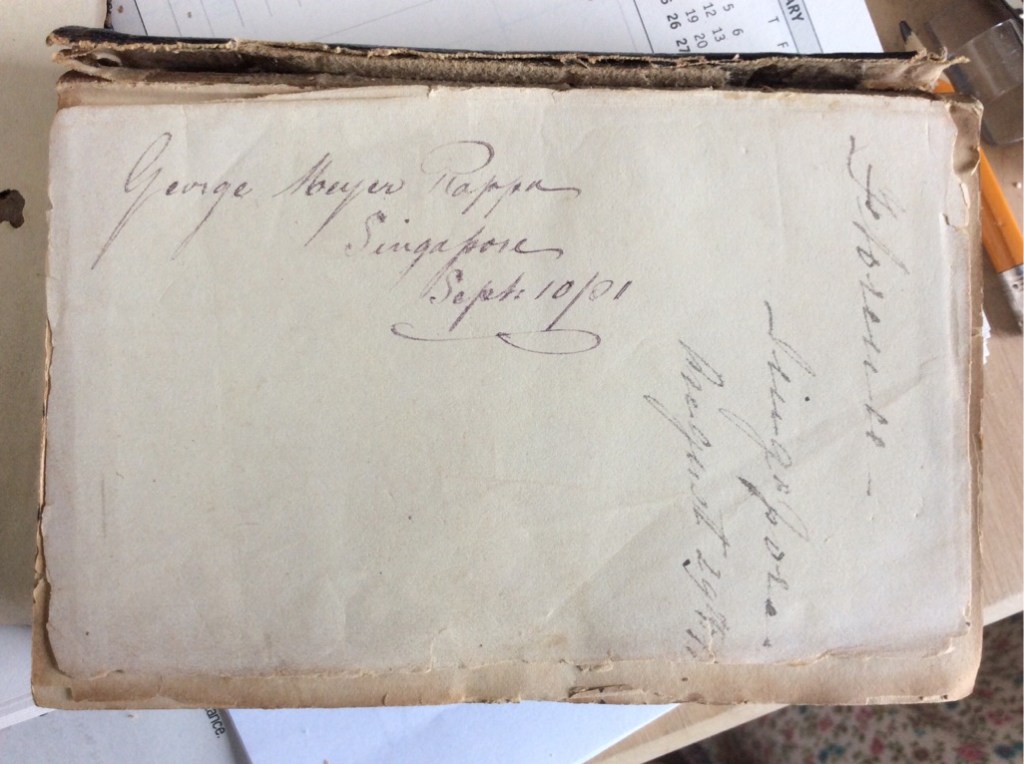 George Meyer Rappa
Singapore
Sept: 10/01
Florence —
Singapore.
August 29th
RY
T F
5 6
12 13
19 20
26 27
ance.